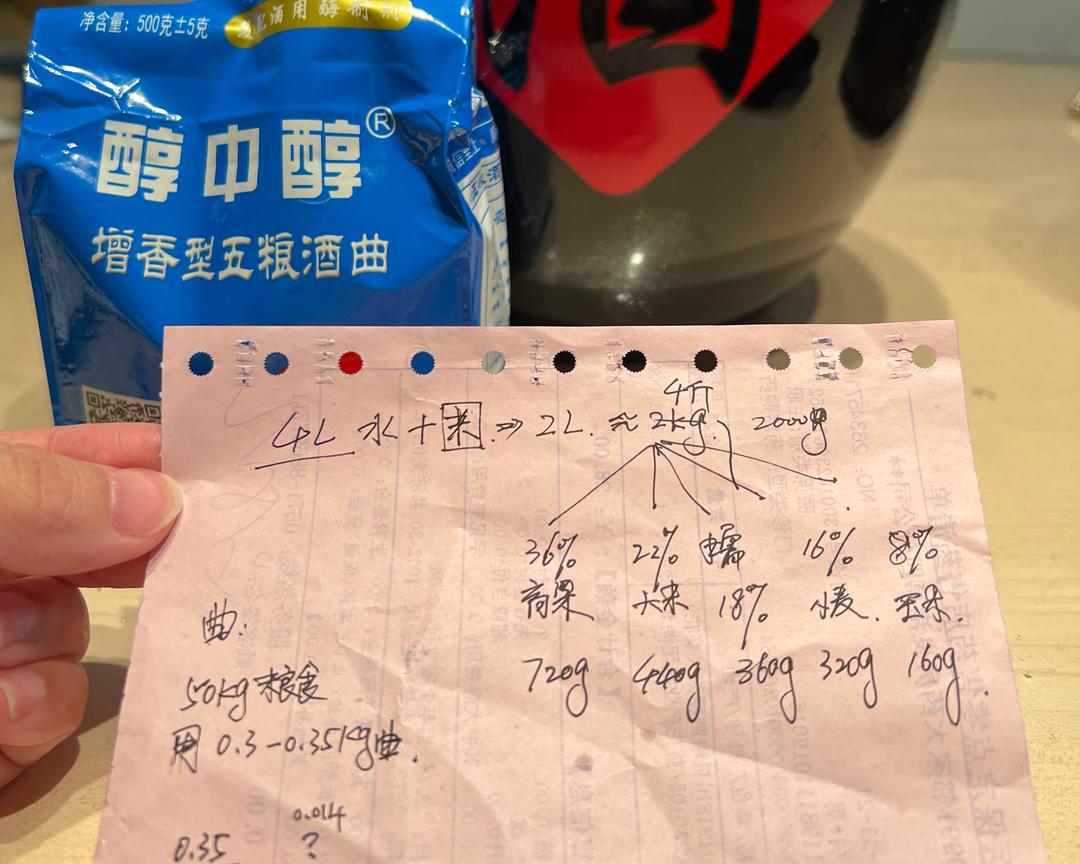 净含量：500克±5克
酒用酶制剂
醇中醇®
增香型五粮酒曲
酒
4斤
4L 水+米 ⇒ 2L. ≈ 2kg. 2000g
36% 22% 糯 16% 8%
高粱 大米 18% 小麦. 玉米.
曲:
720g 440g 360g 320g 160g.
50kg 粮食
用 0.3-0.35kg曲.
0.014
0.35 ?